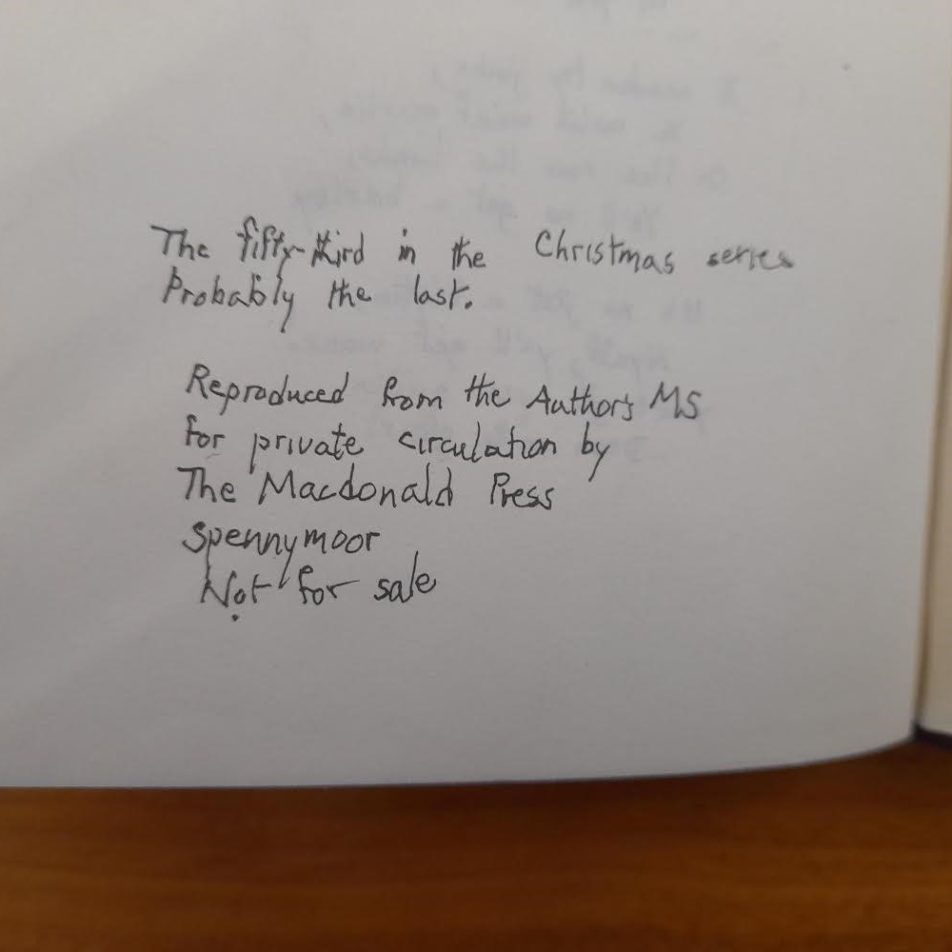 The fifty-third in the Christmas series
Probably the last.
Reproduced from the Author's MS
for private circulation by
The Macdonald Press
Spennymoor
Not for sale